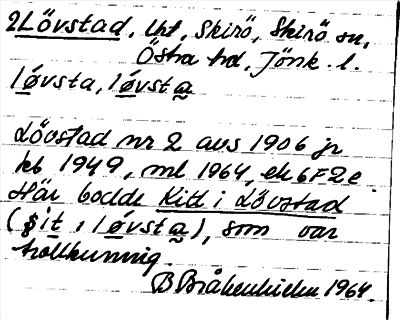 2Lövstad, lht, Skirö, Skirö sn,
Östra hd, Jönk. l.
løvsta, løvsta
Lövstad nr 2 avs 1906 jr
kb 1949, ml 1964, ek 6F2e
Här bodde Kitt i Lövstad
(ʂit i løvsta), som var
trollkunnig.
B Bråkenhielm 1964.